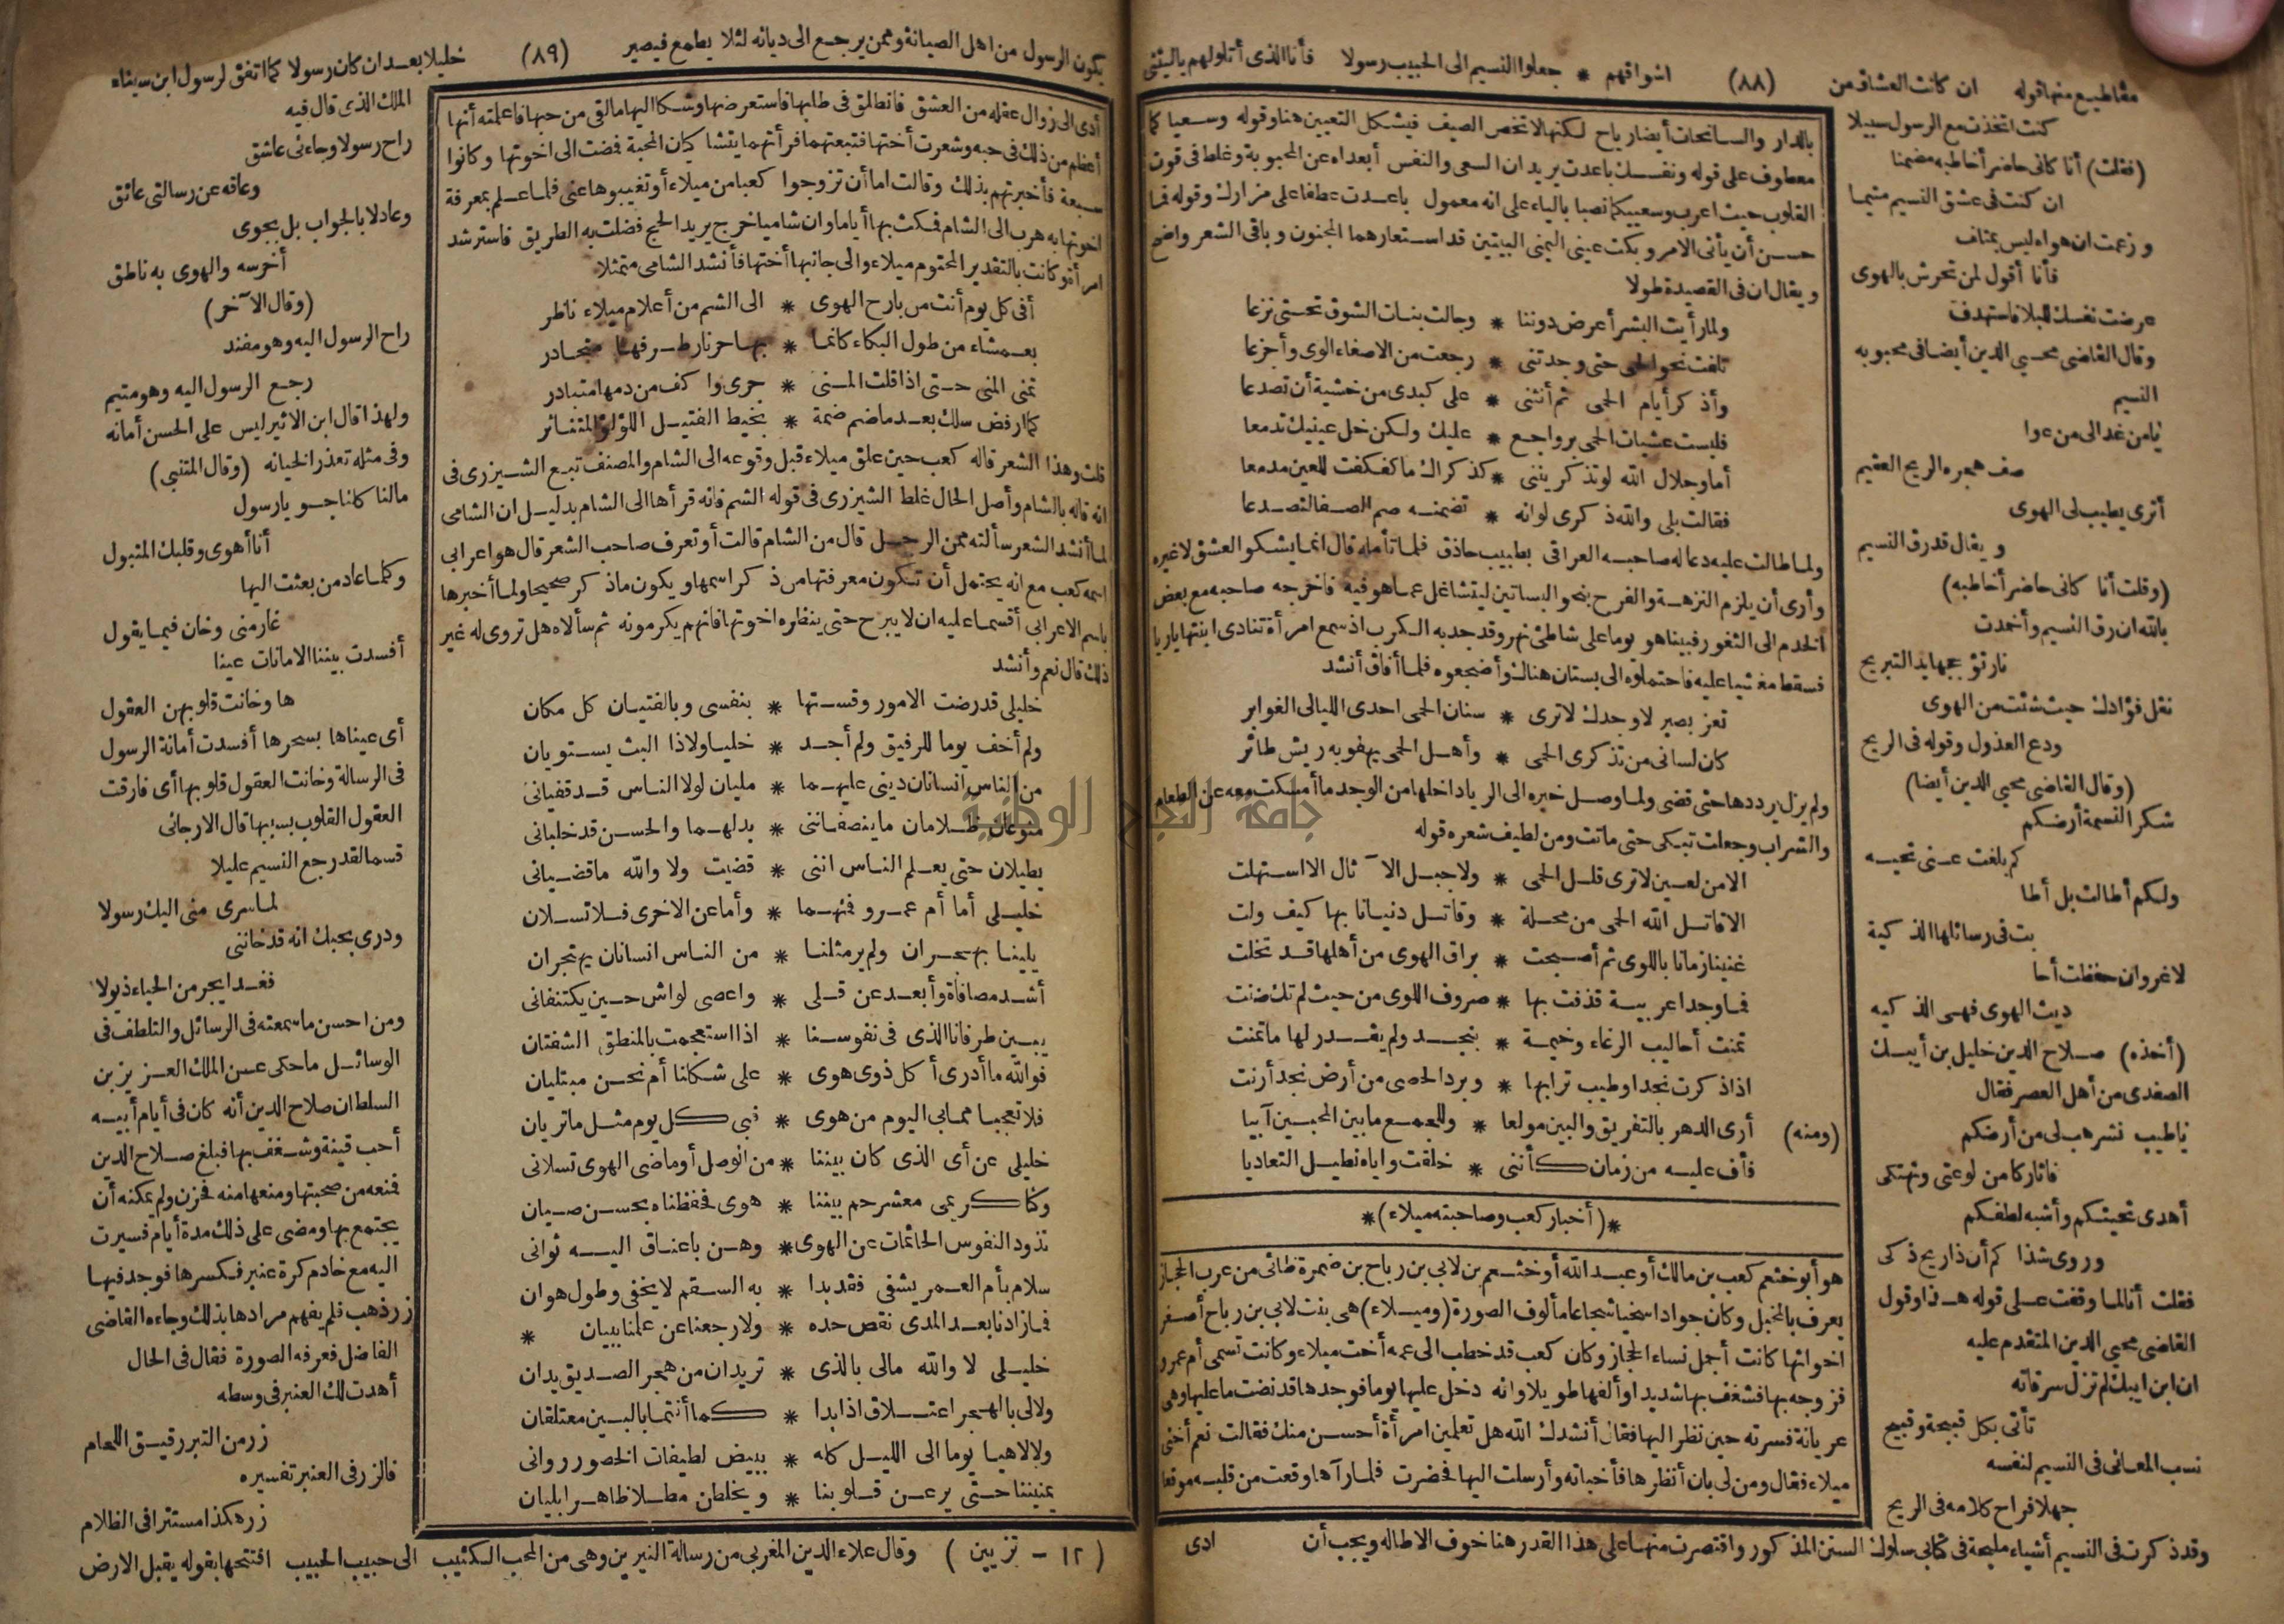 مقاطيع منها قوله ان كانت العشاق من (٨٨) اشواقهم * جعلوا النسيم الى الحبيب رسولا فأنا الذى أتلو لهم ياليتنى
كنت اتخذت مع الرسول سبيلا
(فقلت) أنا كانى حاضر أخاطبه مضمنا
ان كنت فى عشق النسيم متيما
وزعمت ان هواه ليس بمتلف
فأنا أقول لمن تحرش بالهوى
عرضت نفسك للبلا فاستهدف
وقال القاضى محيي الدين أيضا فى محبوبه
النسيم
يا من غدا لى من عوا
صف هجره الريح العقيم
أترى يطيب لى الهوى
ويقال قد رق النسيم
(وقلت أنا كانى حاضر أخاطبه)
بالله ان رق النسيم وأخمدت
نقل فؤادك حيث شئت من الهوى
ودع العذول وقوله فى الريح
(وقال القاضى محيي الدين أيضا)
شكر النسمة أرضكم
كم بلغت عنى تحيه
ولكم أطالت بل أطا
بت فى رسائلها الذكية
لا غروان حفظت أحا
ديث الهوى فهى الذكيه
(أخذه) صلاح الدين خليل بن أيبك
الصفدى من أهل العصر فقال
يا طيب نشر هب لى من أرضكم
فاثار كامن لوعتى وتهتكى
أهدى تحيتكم وأشبه لطفكم
وروى شذا كم أن ذا ريح ذكى
فقلت أنا لما وقفت على قوله هذا وقول
القاضى محيي الدين المتقدم عليه
ان ابن ايبك لم تزل سرقاته
تأتى بكل قبيحة وقبيح
نسب المعانى فى النسيم لنفسه
جهلا فراح كلامه فى الريح
وقد ذكرت فى النسيم أشياء مليحة فى كتابى سلوك السنن المذكور واقتصرت منها على هذا القدر هنا خوف الاطاله ويجب أن
بالدار والسانحات أيضا رياح لكنها لا تخص الصيف فيشكل التعيين هنا وقوله وسعيا كما
معطوف على قوله ونفسك باعدت يريد ان السعى والنفس أبعداه عن المحبوبة وغلط فى قوت
القلوب حيث اعرب وسعييكما نصبا بالياء على انه معمول باعدت عطفا على مزارك وقوله فما
حسن أن يأتى الامر وبكت عينى اليمنى البيتين قد استعارهما المجنون وباقى الشعر واضح
ويقال ان فى القصيدة طولا
ولما رأيت البشر أعرض دوننا * وجالت بنات الشوق تحتى نزعا
تلفت نحو الحى حتى وجدتنى * رجعت من الاصغاء الوى وأجزعا
وأذكر أيام الحمى ثم أنثنى * على كبدى من خشية أن تصدعا
فليست عشيات الحمى برواجع * عليك ولكن خل عينيك تدمعا
أما وجلال الله لو تذكريننى * كذكراك ما كفكفت للعين مدمعا
فقالت بلى والله ذكرى لوانه * تضمنه صم الصفا لتصدعا
ولما طالت عليه دعا له صاحبه العراقى بطبيب حاذق فلما تأمله قال انما يشكو العشق لاغيره
وأرى أن يلزم النزهة والفرح بنحو البساتين ليتشاغل عما هو فيه فاخرجه صاحبه مع بعض
الخدم الى الثغور فبينا هو يوما على شاطئ نهر وقد جد به الكرب اذ سمع امرأة تنادى ابنتها ياريا
فسقط مغشيا عليه فاحتملوه الى بستان هنالك وأضجعوه فلما أفاق أنشد
تعز بصبر لا وجدك لا ترى * سنان الحمى احدى الليالى الغوابر
كان لسانى من تذكرى الحمى * وأهل الحمى يهفو به ريش طائر
ولم يزل يرددها حتى قضى ولما وصل خبره الى الريا داخلها من الوجد ما أمسكت معه عن الطعام
والشراب وجعلت تبكى حتى ماتت ومن لطيف شعره قوله
الامن لعين لا ترى قلل الحمى * ولا جبل الآثال الا استهلت
الا قاتل الله الحمى من محلة * وقاتل دنيانا بها كيف ولت
غنينا زمانا باللوى ثم أصبحت * براق الهوى من أهلها قد تخلت
فما وجد اعرابية قذفت بها * صروف اللوى من حيث لم تك ضنت
تمنت أحاليب الرعاء وخيمة * بنجد ولم يقدر لها ما تمنت
اذا ذكرت نجدا وطيب ترابها * وبرد الحصى من أرض نجد أرنت
(ومنه) أرى الدهر بالتفريق والبين مولعا * وللجمع ما بين المحبين آبيا
فأف عليه من زمان كأننى * خلقت واياه نطيل التعاديا
*(أخبار كعب وصاحبته ميلاء)*
هو أبو خثعم كعب بن مالك أو عبد الله أو خثعم بن لابى بن رباح بن ضمرة طائى من عرب الحجاز
يعرف بالمخبل وكان جوادا سخيا شجاعا مألوف الصورة (وميلاء) هى بنت لابى بن رباح أصغر
اخواتها كانت أجمل نساء الحجاز وكان كعب قد خطب الى عمه أخت ميلاء وكانت تسمى أم عمرو
فزوجه بها فشغف بها شديدا وألفها طويلا وانه دخل عليها يوما فوجدها قد نضت ما عليها وهى
عريانة فسرته حين نظر اليها فقال أنشدك الله هل تعلمين امرأة أحسن منك فقالت نعم أختى
ميلاء فقال ومن لى بان أنظرها فأخبأته وأرسلت اليها فحضرت فلما رآها وقعت من قلبه موقعا
ادى
يكون الرسول من اهل الصيانة وممن يرجع الى ديانه لئلا يطمع فيصير (٨٩) خليلا بعد ان كان رسولا كما اتفق لرسول ابن سيناء
أدى الى زوال عقله من العشق فانطلق فى طلبها فاستعرضها وشكا اليها ما لقى من حبها فاعلمته أنها
أعظم من ذلك فى حبه وشعرت أختها فتبعتهما فرأتهما يتشاكيان المحبة فمضت الى اخوتها وكانوا
سبعة فأخبرتهم بذلك وقالت اما أن تزوجوا كعبا من ميلاء أو تغيبوها عنى فلما علم بمعرفة
اخوتها به هرب الى الشام فمكث بها أياما وان شاميا خرج يريد الحج فضلت به الطريق فاسترشد
امرأة وكانت بالتقدير المحتوم ميلاء والى جانبها أختها فأنشد الشامى متمثلا
أفى كل يوم أنت من بارح الهوى * الى الشم من أعلام ميلاء ناظر
بعمشاء من طول البكاء كانما * بها حر نار طرفها متحادر
تمنى المنى حتى اذا قلت المنى * جرى واكف من دمها متبادر
كما ارفض سلك بعد ما ضم ضمة * بخيط الفتيل اللؤلؤ المتناثر
قلت وهذا الشعر قاله كعب حين علق ميلاء قبل وقوعه الى الشام والمصنف تبع الشيزرى فى
انه قاله بالشام وأصل الحال غلط الشيزرى فى قوله الشم فانه قرأها الى الشام بدليل ان الشامى
لما أنشد الشعر سألته ممن الرجل قال من الشام قالت أو تعرف صاحب الشعر قال هو اعرابى
اسمه كعب مع انه يحتمل أن تكون معرفتها من ذكر اسمها ويكون ماذكر صحيحا ولما أخبرها
باسم الاعرابى أقسما عليه ان لا يبرح حتى ينظره اخوتها فانهم يكرمونه ثم سألاه هل تروى له غير
ذلك قال نعم وأنشد
خليلى قد رضت الامور وقستها * بنفسى وبالفتيان كل مكان
ولم أخف يوما للرفيق ولم أجد * خليا ولا ذا البث يستويان
من الناس انسانان دينى عليهما * مليان لولا الناس قد قضيانى
منوعان ظلامان ما ينصفاننى * بدلهما والحسن قد خلبانى
يطيلان حتى يعلم الناس اننى * قضيت ولا والله ما قضيانى
خليلى أما أم عمرو فمنهما * وأما عن الاخرى فلا تسلان
يلينا بهجران ولم ير مثلنا * من الناس انسانان يهتجران
أشد مصافاة وأبعد عن قلى * واعصى لواش حين يكتنفانى
يبين طرفانا الذى فى نفوسنا * اذا استعجمت بالمنطق الشفتان
فوالله ما أدرى أكل ذوى هوى * على شكلنا أم نحن مبتليان
فلا تعجبا مما بى اليوم من هوى * فبى كل يوم مثل ما تريان
خليلى عن أى الذى كان بيننا * من الوصل أو ماضى الهوى تسلانى
وكنا كريمى معشر حم بيننا * هوى فحفظناه بحسن صيان
نذود النفوس الحائمات عن الهوى * وهن باعناق اليه ثوانى
سلام بأم العمر يشفى فقد بدا * به السقم لا يخفى وطول هوان
فما زادنا بعد المدى نقص حده * ولا رجعنا عن علمنا ببيان *
خليلى لا والله مالى بالذى * تريدان من هجر الصديق يدان
ولا لى بالهجر اعتلاق اذا بدا * كما أنتما بالبين معتلقان
ولا لاهيا يوما الى الليل كله * ببيض لطيفات الخصور روانى
يمنيننا حتى يرعن قلوبنا * ويخلطن مطلا ظاهرا بليان
الملك الذى قال فيه
راح رسولا وجاءنى عاشق
وعاقه عن رسالتى عائق
وعادلا بالجواب بل بجوى
أخرسه والهوى به ناطق
(وقال الآخر)
راح الرسول اليه وهو مفند
رجع الرسول اليه وهو متيم
ولهذا قال ابن الاثير ليس على الحسن أمانه
وفى مثله تعذر الخيانه (وقال المتنبى)
مالنا كلنا جو يا رسول
أنا أهوى وقلبك المتبول
وكلما عاد من بعثت اليها
غار منى وخان فيما يقول
أفسدت بيننا الامانات عينا
ها وخانت قلوبهن العقول
أى عيناها بسحرها أفسدت أمانة الرسول
فى الرسالة وخانت العقول قلوبها أى فارقت
العقول القلوب بسببها قال الارجانى
قسما لقد رجع النسيم عليلا
لما سرى منى اليك رسولا
ودرى بحبك انه قد خاننى
فغدا يجر من الحياء ذيولا
ومن احسن ما سمعته فى الرسائل والتلطف فى
الوسائل ما حكى عن الملك العزيز بن
السلطان صلاح الدين أنه كان فى أيام أبيه
أحب قينة وشغف بها فبلغ صلاح الدين
فمنعه من صحبتها ومنعها منه فحزن ولم يمكنه أن
يجتمع بها ومضى على ذلك مدة أيام فسيرت
اليه مع خادم كرة عنبر فكسرها فوجد فيها
زر ذهب فلم يفهم مرادها بذلك وجاءه القاضى
الفاضل فعرفه الصورة فقال فى الحال
أهدت لك العنبر فى وسطه
زر من التبر رقيق اللحام
فالزر فى العنبر تفسيره
زر هكذا مستترا فى الظلام
(١٢ - تزيين) وقال علاء الدين المغربى من رسالة النيرين وهى من المحب الكئيب الى حبيب الحبيب افتتحها بقوله يقبل الارض
جامعة النجاح الوطنية